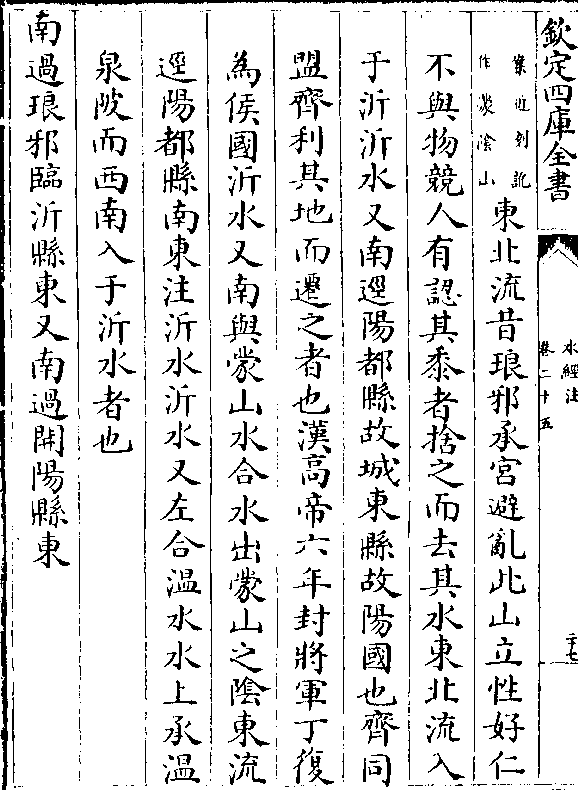 欽定四庫全書
水經注
卷二十五
二十七
案近刻訛
作濛陰山
東北流昔琅邪承宮避亂此山立性好仁
不與物競人有認其黍者捨之而去其水東北流入
于沂沂水又南逕陽都縣故城東縣故陽國也齊同
盟齊利其地而遷之者也漢高帝六年封將軍丁復
為侯國沂水又南與蒙山水合水出蒙山之陰東流
逕陽都縣南東注沂水沂水又左合溫水水上承溫
泉陂而西南入于沂水者也
南過琅邪臨沂縣東又南過開陽縣東